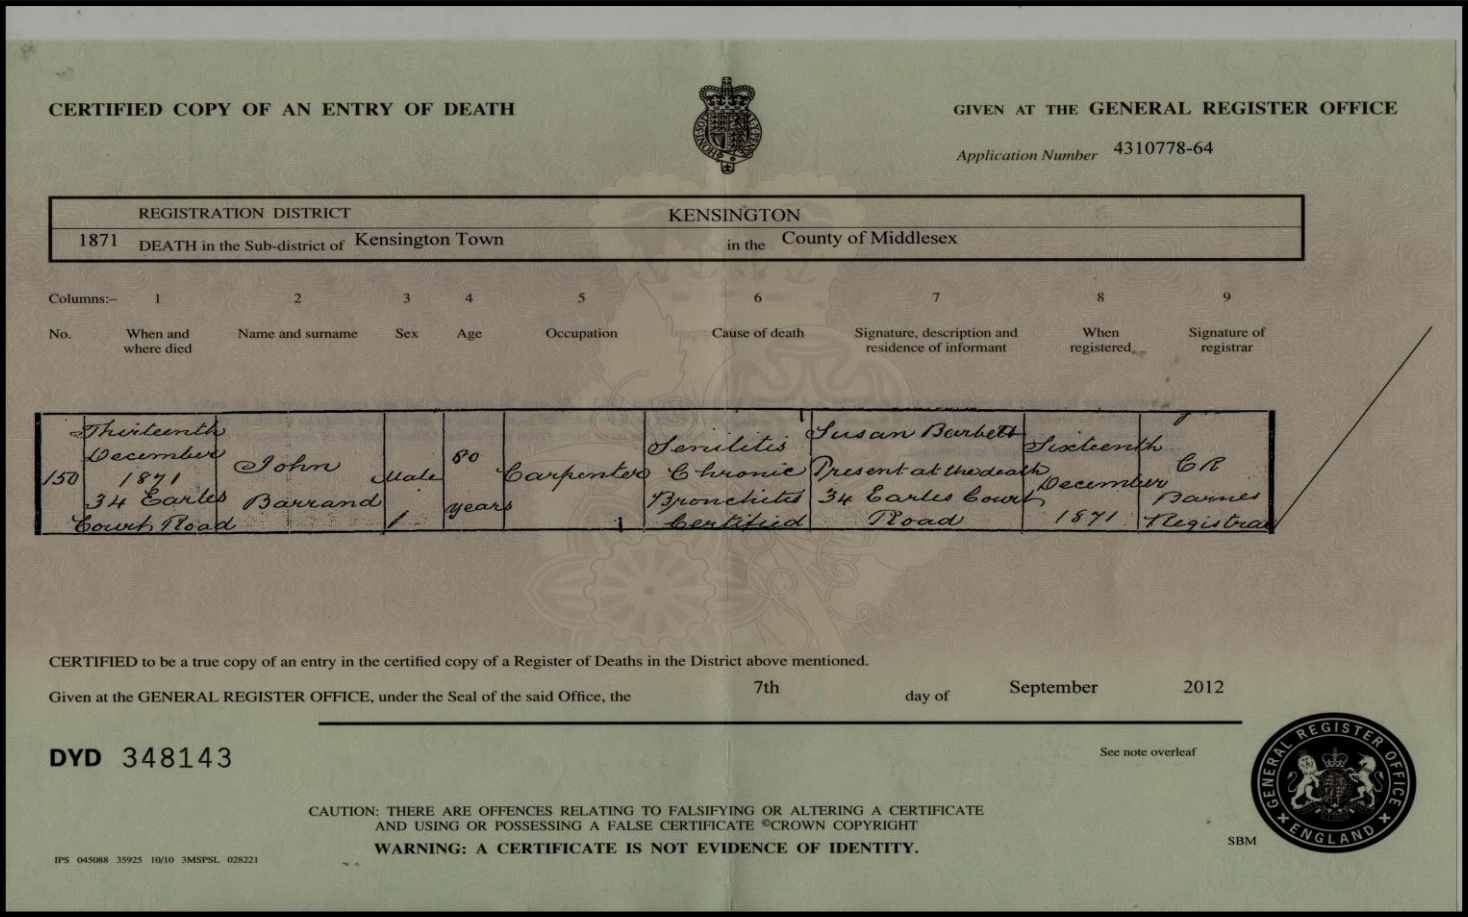 CERTIFIED COPY OF AN ENTRY OF DEATH
GIVEN AT THE GENERAL REGISTER OFFICE
Application Number 4310778-64
REGISTRATION DISTRICT KENSINGTON
1871 DEATH in the Sub-district of Kensington Town in the County of Middlesex
Columns:– 1 2 3 4 5 6 7 8 9
No. When and where died Name and surname Sex Age Occupation Cause of death Signature, description and residence of informant When registered Signature of registrar
150
Thirteenth
December
1871
34 Earles
Court Road
John
Barrand
Male
80
years
Carpenter
Senilitis
Chronic
Bronchitis
Certified
Susan Barbett
Present at the death
34 Earles Court
Road
Sixteenth
December
1871
CR
Barnes
Registrar
CERTIFIED to be a true copy of an entry in the certified copy of a Register of Deaths in the District above mentioned.
Given at the GENERAL REGISTER OFFICE, under the Seal of the said Office, the 7th day of September 2012
DYD 348143
See note overleaf
GENERAL REGISTER OFFICE
ENGLAND
CAUTION: THERE ARE OFFENCES RELATING TO FALSIFYING OR ALTERING A CERTIFICATE
AND USING OR POSSESSING A FALSE CERTIFICATE ©CROWN COPYRIGHT
WARNING: A CERTIFICATE IS NOT EVIDENCE OF IDENTITY.
SBM
IPS 045088 35925 10/10 3MSPSL 028221